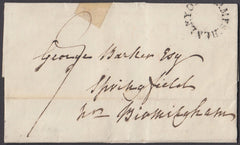 George Barker Esq
Springfield
nr Birmingham